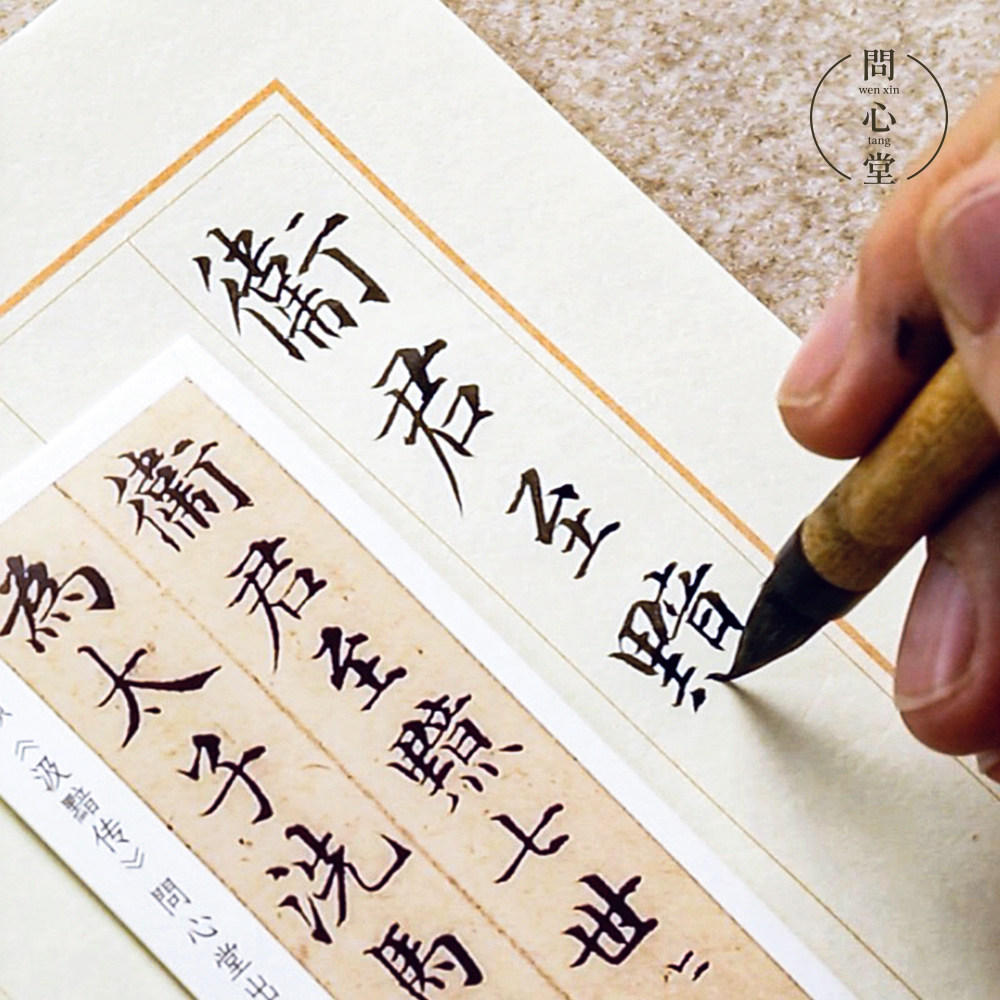 問
wen xin
心
tang
堂
衞君至黯
衞君至黯七世〻
為太子洗馬
《汲黯传》 問心堂出